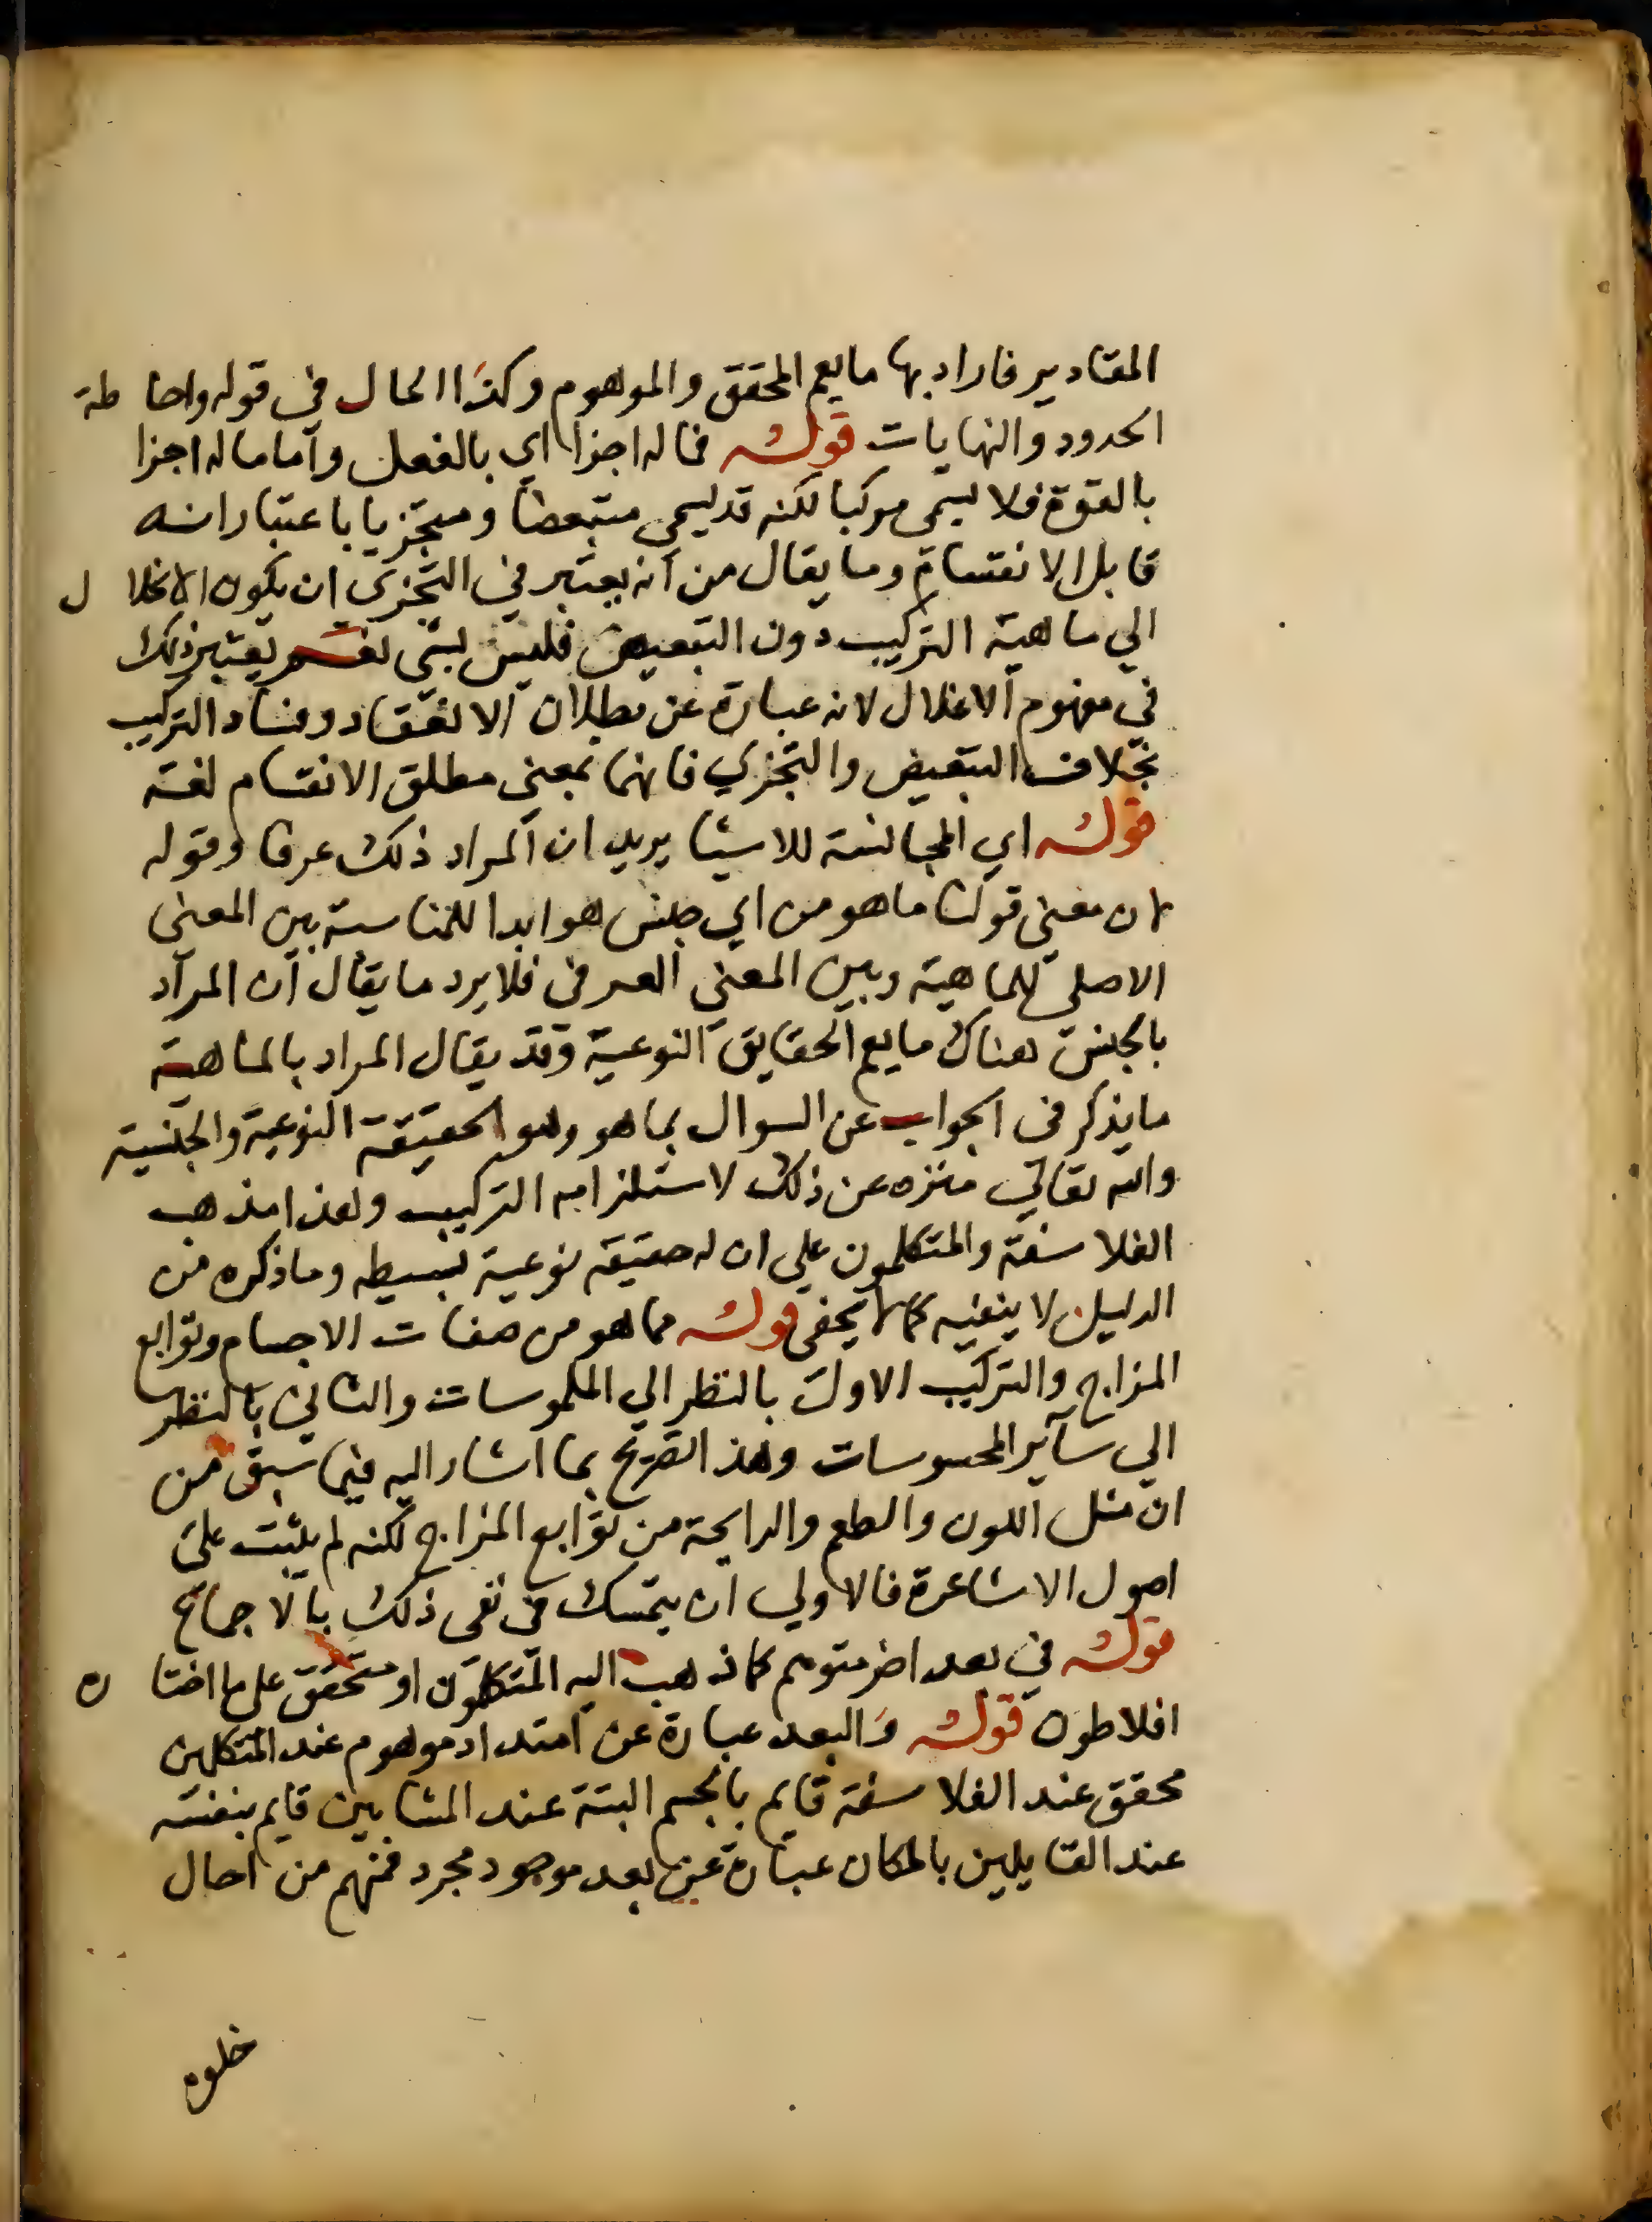 المقادير فاراد بها ما يعم المحقق والموهوم وكذا الحال في قوله واحاطة
الحدود والنهايات قوله فماله اجزا اي بالفعل واما ماله اجزا
بالقوة فلا يسمى مركبا لكنه قد يسمى متبعضا ومتجزيا باعتبار انه
قابل الانقسام وما يقال من انه يعتبر في التجزي ان يكون الانحلال
الي ماهية التركيب دون التبعيض فليس بشي نعم يعتبر ذلك
في مفهوم الانحلال لانه عبارة عن بطلان الانعقاد وفساد التركيب
بخلاف التبعيض والتجزي فانهما بمعني مطلق الانقسام لغة
قوله اي المجانسة للاشيا يريد ان المراد ذلك عرفا وقوله
لان معني قولنا ما هو من اي جنس هو ابدا للمناسبة بين المعني
الاصلي للماهية وبين المعني العرفي فلا يرد ما يقال ان المراد
بالجنس هناك ما يعم الحقايق النوعية وقد يقال المراد بالماهية
ما يذكر في الجواب عن السوال بما هو وهو الحقيقة النوعية والجنسية
والله تعالي منزه عن ذلك لاستلزامه التركيب وهذا مذهب
الفلاسفة والمتكلمون علي ان له حقيقة نوعية بسيطه وما ذكره من
الدليل لا ينفيه كما لا يخفى قوله مما هو من صفات الاجسام وتوابع
المزاج والتركيب الاول بالنظر الي الملموسات والثاني بالنظر
الي ساير المحسوسات وهذا تصريح بما اشار اليه فيما سبق من
ان مثل اللون والطعم والرايحة من توابع المزاج لكنه لم يثبت على
اصول الاشاعرة فالاولي ان يتمسك في نفى ذلك بالاجماع
قوله في بعد اخر متوهم كما ذهب اليه المتكلمون او متحقق على ما اختاره
افلاطون قوله والبعد عبارة عن امتداد موهوم عند المتكلمين
محقق عند الفلاسفة قايم بالجسم البتة عند المشايين قايم بنفسه
عند القايلين بالمكان عبارة عن بعد موجود مجرد فمنهم من احال
خلوه